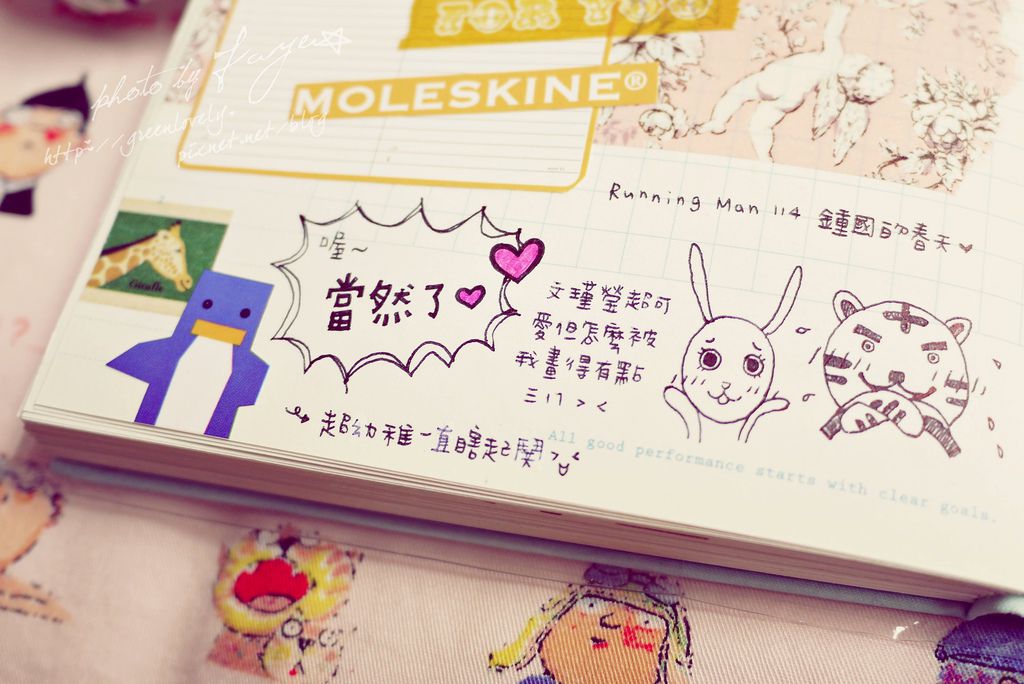 FOR YOU
photo by Faye
http://greenlovely.
pixnet.net/blog
MOLESKINE®
Running Man 114 鍾國的春天
喔~
當然了
Giraffe
文瑾瑩超可
愛但怎麼被
我畫得有點
三八 > <
超幼稚一直瞎起鬨
All good performance starts with clear goals.